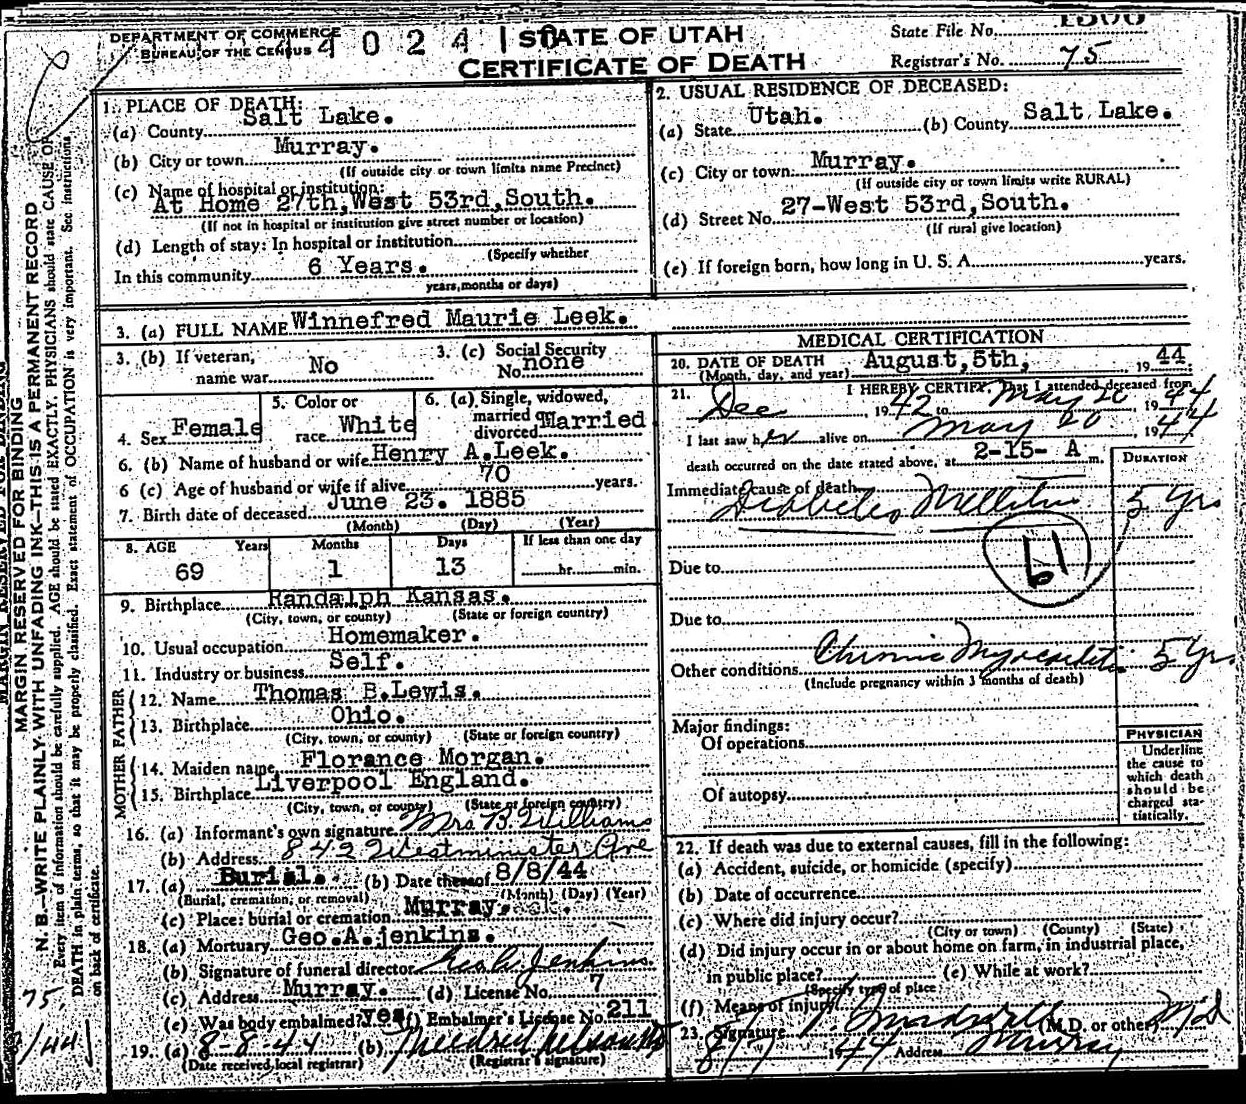 DEPARTMENT OF COMMERCE
BUREAU OF THE CENSUS
4 0 2 4 1 0
STATE OF UTAH
CERTIFICATE OF DEATH
State File No.
Registrar's No. 75
MARGIN RESERVED FOR BINDING
N. B.—WRITE PLAINLY WITH UNFADING INK—THIS IS A PERMANENT RECORD
Every item of information should be carefully supplied. AGE should be stated EXACTLY. PHYSICIANS should state CAUSE OF
DEATH in plain terms, so that it may be properly classified. Exact statement of OCCUPATION is very important. See instructions
on back of certificate.
1. PLACE OF DEATH:
(a) County Salt Lake.
(b) City or town Murray.
(If outside city or town limits name Precinct)
(c) Name of hospital or institution:
At Home 27th,West 53rd,South.
(If not in hospital or institution give street number or location)
(d) Length of stay: In hospital or institution
(Specify whether
In this community 6 Years.
years, months or days)
2. USUAL RESIDENCE OF DECEASED:
(a) State Utah. (b) County Salt Lake.
(c) City or town: Murray.
(If outside city or town limits write RURAL)
(d) Street No. 27-West 53rd,South.
(If rural give location)
(e) If foreign born, how long in U. S. A. years.
3. (a) FULL NAME Winnefred Maurie Leek.
3. (b) If veteran, name war No
3. (c) Social Security No. none
4. Sex Female
5. Color or race White
6. (a) Single, widowed, married or divorced Married
6. (b) Name of husband or wife Henry A.Leek.
6 (c) Age of husband or wife if alive 70 years.
7. Birth date of deceased June 23. 1885
(Month) (Day) (Year)
8. AGE Years Months Days If less than one day
69 1 13 hr. min.
9. Birthplace Randalph Kansas.
(City, town, or county) (State or foreign country)
10. Usual occupation Homemaker.
11. Industry or business Self.
FATHER
12. Name Thomas B.Lewis.
13. Birthplace Ohio.
(City, town, or county) (State or foreign country)
MOTHER
14. Maiden name Florance Morgan.
15. Birthplace Liverpool England.
(City, town, or county) (State or foreign country)
16. (a) Informant's own signature Mrs B Williams
(b) Address 842 Westminster Ave
17. (a) Burial. (b) Date thereof 8/8/44
(Burial, cremation, or removal) (Month) (Day) (Year)
(c) Place: burial or cremation Murray.
18. (a) Mortuary Geo.A.jenkins.
(b) Signature of funeral director Geo A Jenkins.
(c) Address Murray. (d) License No. 7
(e) Was body embalmed? yes (f) Embalmer's License No. 211
19. (a) 8-8-44 (b)
(Date received local registrar) (Registrar's signature)
MEDICAL CERTIFICATION
20. DATE OF DEATH August,5th, 1944
(Month, day, and year)
21. I HEREBY CERTIFY, That I attended deceased from
Dec 1942 to May 20, 1944
I last saw her alive on May 20 1944
death occurred on the date stated above, at 2-15- A m.
DURATION
Immediate cause of death
Diabetes Mellitus 5 yrs
61
Due to
Due to
Other conditions Chronic Myocarditis 5 yrs
(Include pregnancy within 3 months of death)
Major findings:
Of operations
Of autopsy
PHYSICIAN
Underline
the cause to
which death
should be
charged sta-
tistically.
22. If death was due to external causes, fill in the following:
(a) Accident, suicide, or homicide (specify)
(b) Date of occurrence
(c) Where did injury occur?
(City or town) (County) (State)
(d) Did injury occur in or about home on farm, in industrial place,
in public place? (e) While at work?
(Specify type of place)
(f) Means of injury
23. Signature (M.D. or other) MD
8/7 1944 Address Murray
75